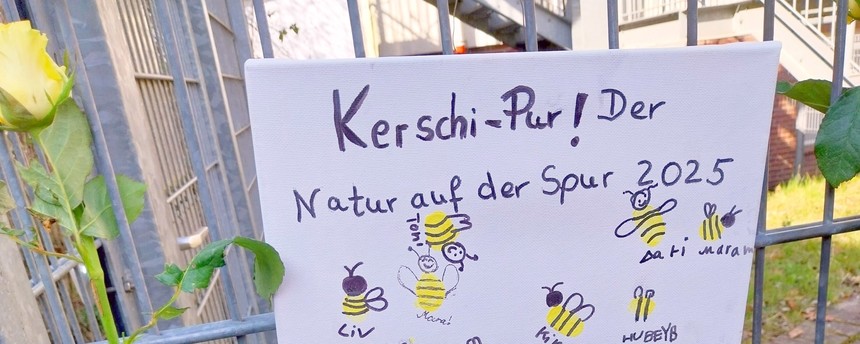 Kerschi-Pur! Der
Natur auf der Spur 2025
Toni
Dari
Maram
Liv
HUBEYB